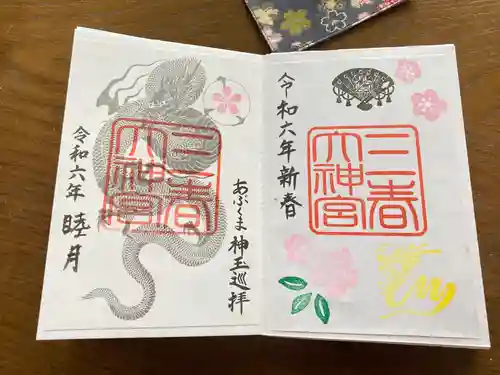 令和六年新春
三春
大神宮
あぶくま神玉巡拝
三春
大神宮
令和六年 睦月